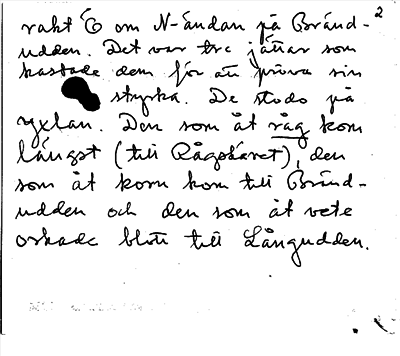 2
rakt Ö om N-ändan på Bränd-
udden. Det var tre jättar som
kastade dem för att pröva sin
styrka. De stodo på
yxlan. Den som åt råg kom
längst (till Rågskäret), den
som åt korn kom till Bränd-
udden och den som åt vete
orkade blott till Långudden.